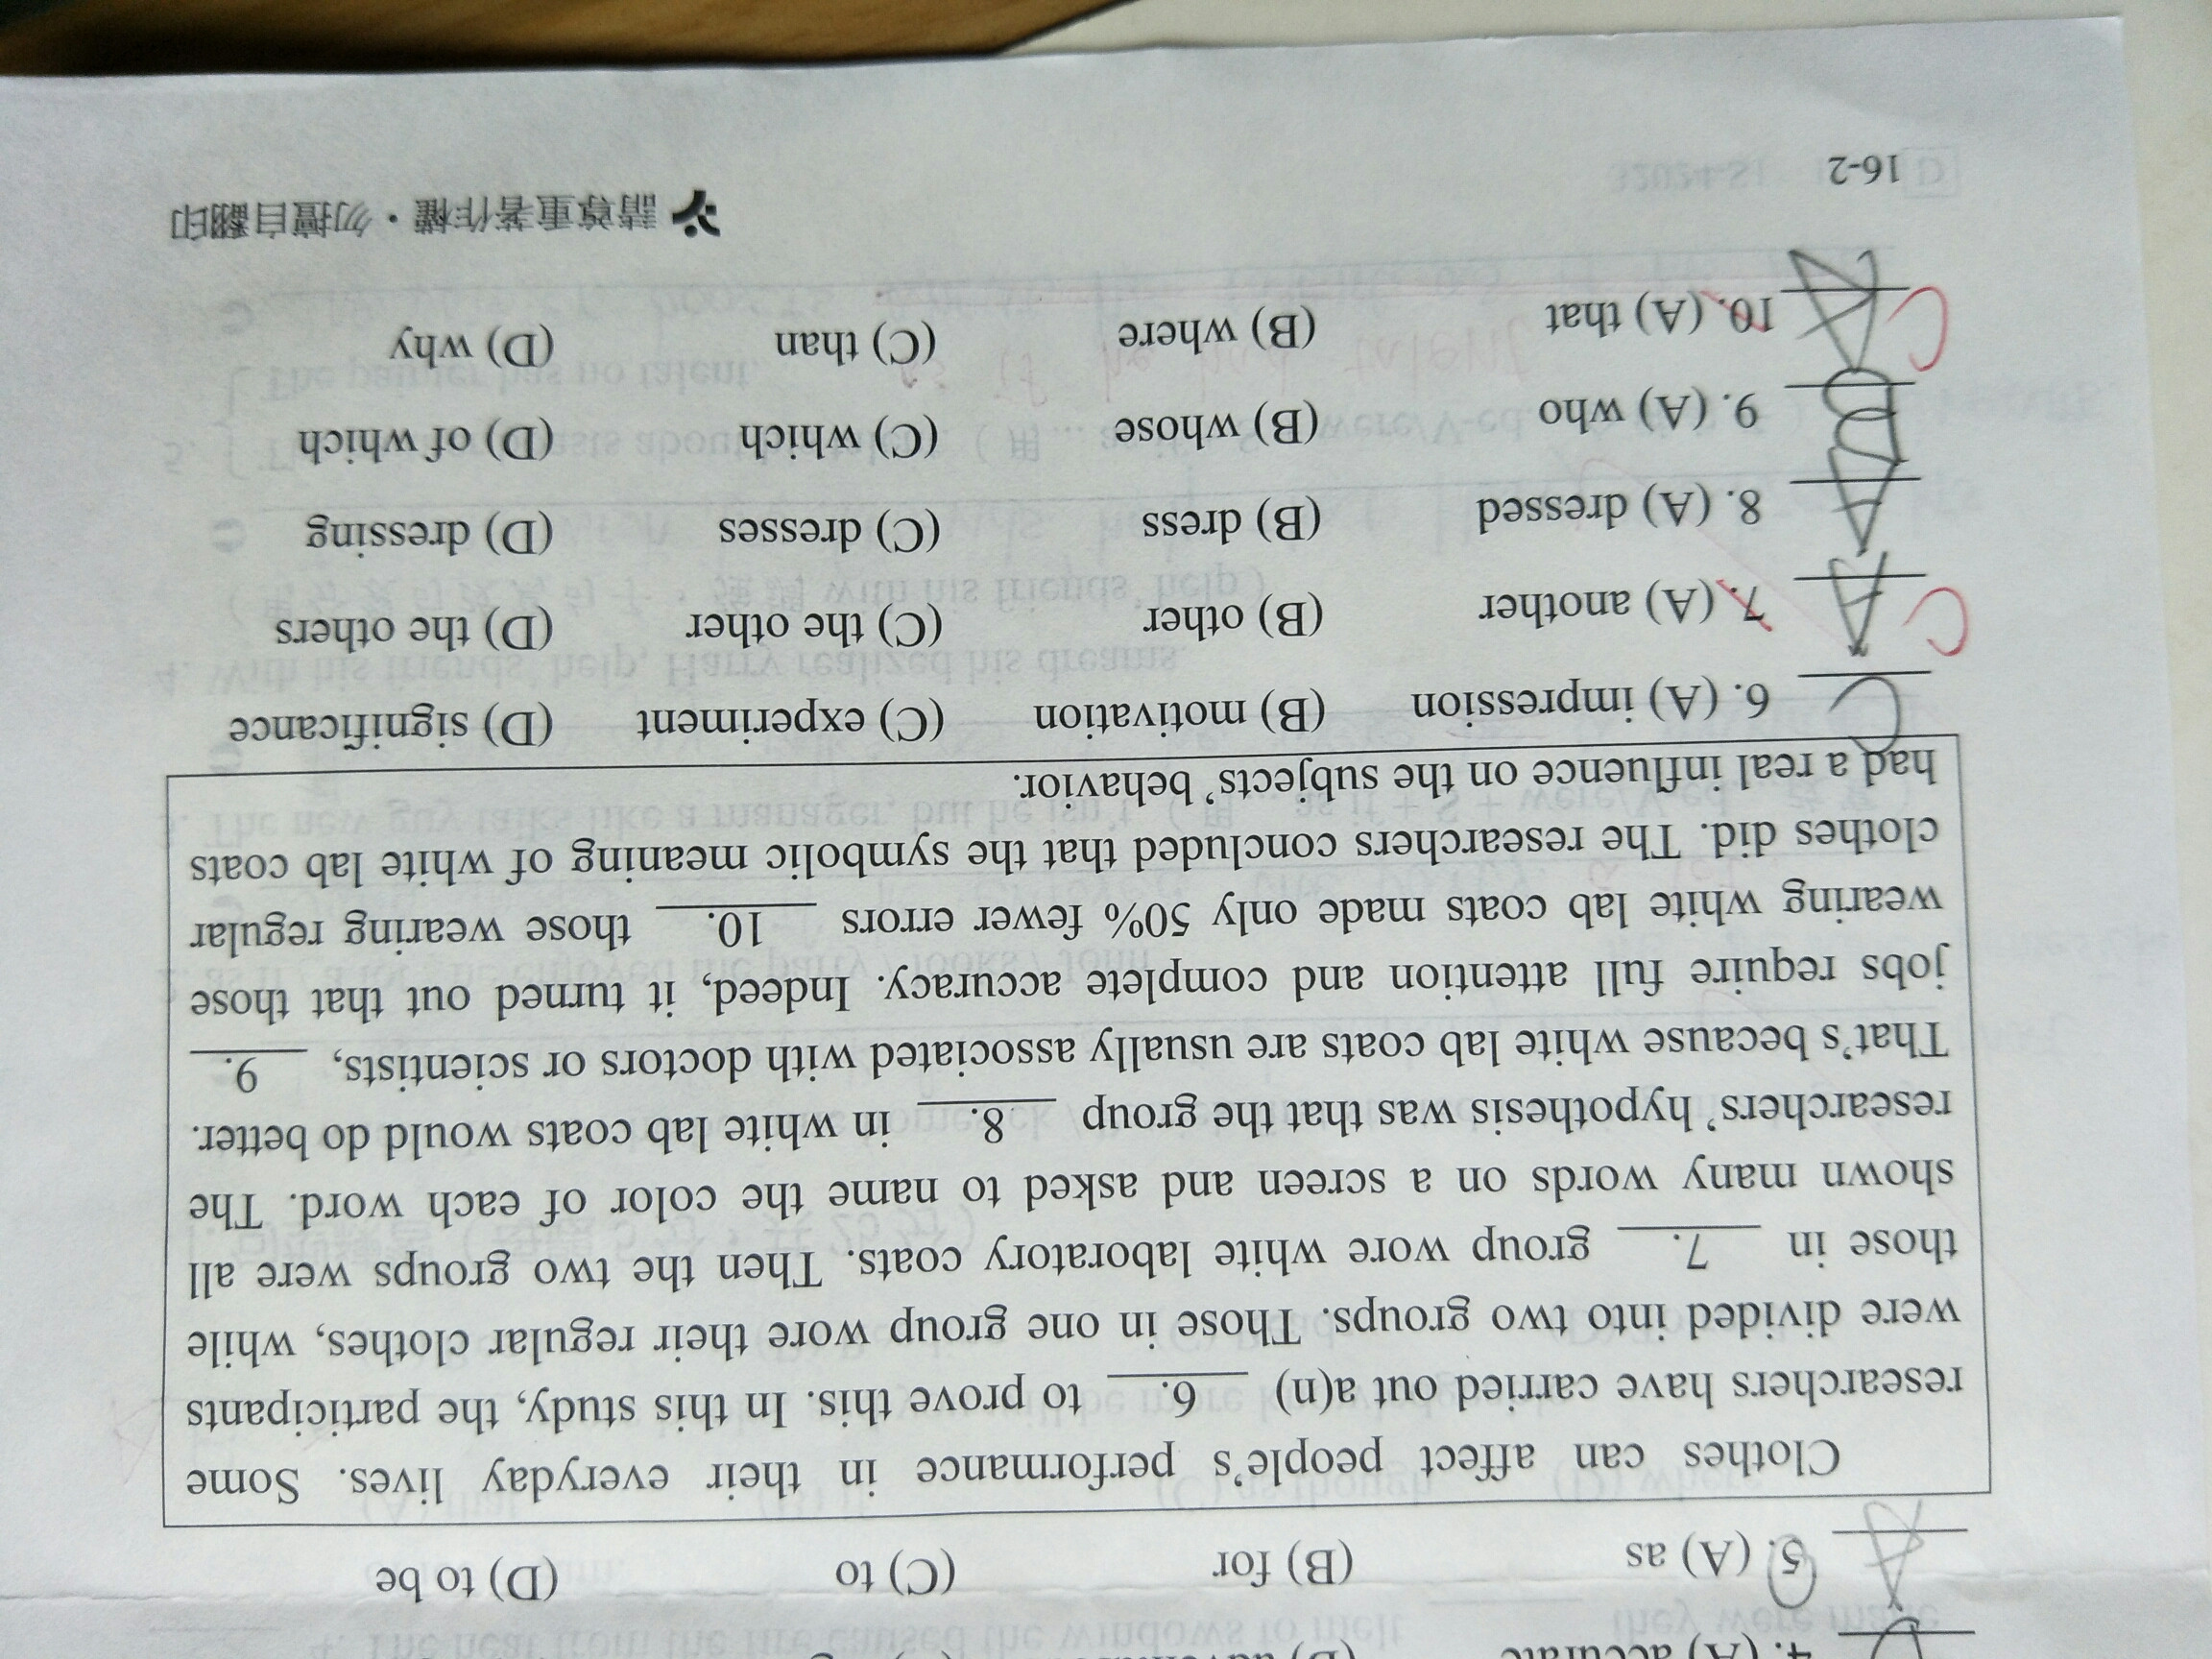 5. (A) as (B) for (C) to (D) to be
Clothes can affect people's performance in their everyday lives. Some
researchers have carried out a(n) 6. to prove this. In this study, the participants
were divided into two groups. Those in one group wore their regular clothes, while
those in 7. group wore white laboratory coats. Then the two groups were all
shown many words on a screen and asked to name the color of each word. The
researchers' hypothesis was that the group 8. in white lab coats would do better.
That's because white lab coats are usually associated with doctors or scientists, 9.
jobs require full attention and complete accuracy. Indeed, it turned out that those
wearing white lab coats made only 50% fewer errors 10. those wearing regular
clothes did. The researchers concluded that the symbolic meaning of white lab coats
had a real influence on the subjects' behavior.
C 6. (A) impression (B) motivation (C) experiment (D) significance
C A 7. (A) another (B) other (C) the other (D) the others
A 8. (A) dressed (B) dress (C) dresses (D) dressing
B 9. (A) who (B) whose (C) which (D) of which
C A 10. (A) that (B) where (C) than (D) why
16-2
請尊重著作權・勿擅自翻印